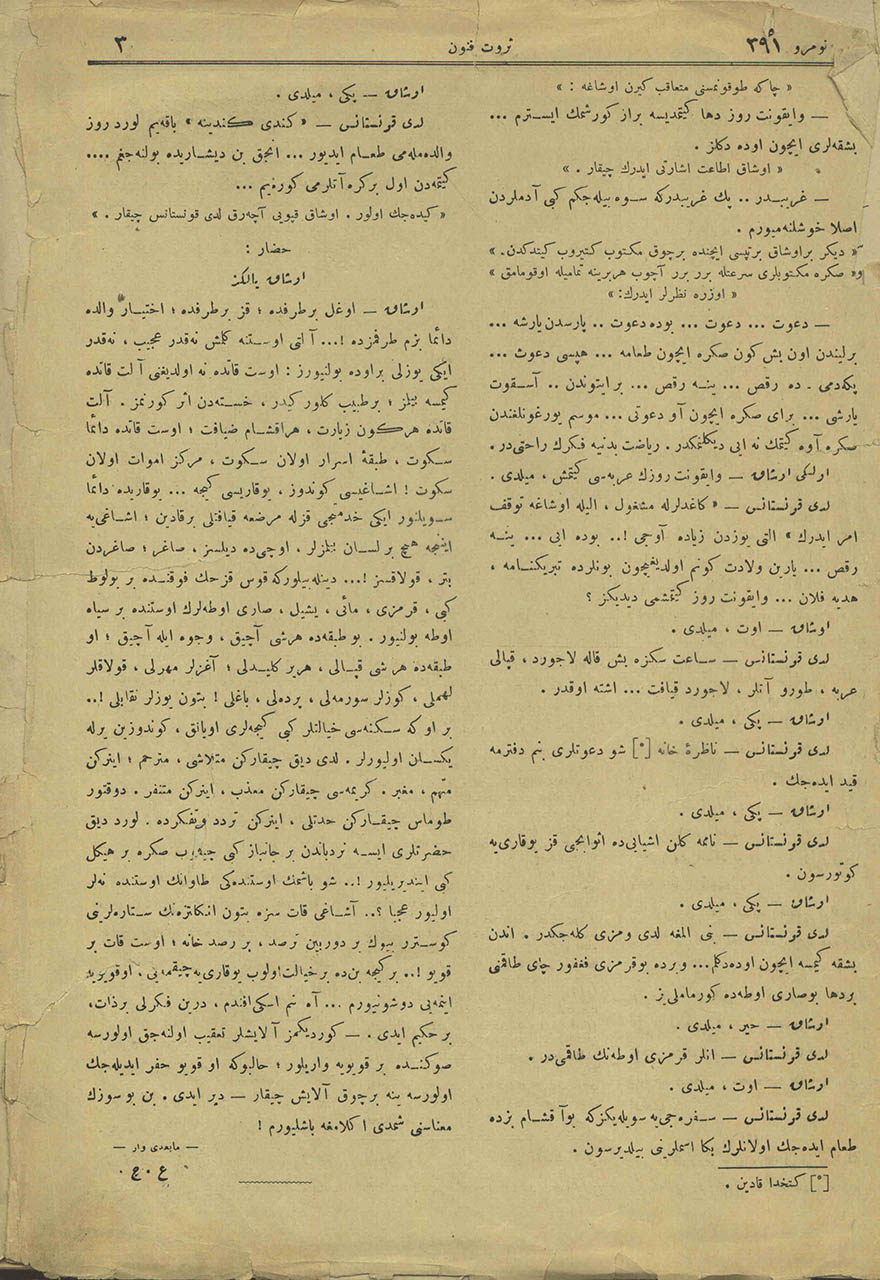 نومرو ٣٩١
ثروت فنون
٣
« چاكه طوقونمسنی متعاقب كیرن اوشاغه : »
— وایقونت روز دها كیتمدیسه براز كورشمك ایسترم ...
بشقه‌لری ایچون اوده دكلز .
« اوشاق اطاعت اشارتی ایدرك چیقار . »
— غریبدر .. پك غریبدركه سوه بیله‌جكم كبی آدملردن
اصلا خوشلنه‌میورم .
« دیكر براوشاق برتپسی ایچنده برچوق مكتوب كتیروب كیتدكدن . »
« صكره مكتوبلری سرعتله برر برر آچوب هربرینه تمامیله اوقومامق »
« اوزره نظرلر ایدرك: »
— دعوت ... دعوت ... بوده دعوت .. پارسدن یارشه ...
برلیندن اون بش كون صكره ایچون طعامه ... هپسی دعوت ...
پكه‌دمی . ده رقص ... ینه رقص ... برایتوندن .. آسقوت
یارشی ... برای صكره ایچون آو دعوتی ... موسم یورغونلغندن
صكره آوه كیتمك نه ایی دیكلنمكدر . ریاضت بدنیه فكرك راحتی‌در .
اولكی اوشاق — وایقونت روزك عربه‌سی كیتمش ، میلدی .
لدی قونستانس — « كاغدلرله مشغول ، الیله اوشاغه توقف
امر ایدرك » التی یوزدن زیاده آوجی !.. بوده ایی ... ینه
رقص ... یارین ولادت كونم اولدیغیچون بونلرده تبریكنامه ،
هدیه فلان ... وایقونت روز كیتمشمی دیدیكز ؟
اوشاق — اوت ، میلدی .
لدی قونستانس — ساعت سكزه بش قاله لاجورد ، قپالی
عربه ، طورو آتلر ، لاجورد قیافت ... اشته اوقدر .
اوشاق — پكی ، میلدی .
لدی قونستانس — ناظرهٔ خانه [*] شو دعوتلری بنم دفترمه
قید ایده‌جك .
اوشاق — پكی ، میلدی .
لدی قونستانس — نامه كلن اشیایی‌ده اثوابجی قز یوقاری‌یه
كوتورسون .
اوشاق — پكی ، میلدی .
لدی قونستانس — بنی المغه لدی ومزی كله‌جكدر . اندن
بشقه كیمسه ایچون اوده‌دكلم... وبرده بوقرمزی فغفور چای طاقمنی
بردها بوصاری اوطه‌ده كورمامه‌لی‌یز .
اوشاق — خیر ، میلدی .
لدی قونستانس — انلر قرمزی اوطه‌نك طاقمی‌در .
اوشاق — اوت ، میلدی .
لدی قونستانس — سفره‌جی‌یه سویله‌یكزكه بوآقشام بزده
طعام ایده‌جك اولانلرك بكا اسملرینی بیلدیرسون .
[*] كتخدا قادین .
اوشاق — پكی ، میلدی .
لدی قونستانس — « كندی كندینه » باقه‌یم لورد روز
والده‌مله‌می طعام ایدیور ... انجق بن دیشاریده بولنه‌جغم ....
كیتمه‌دن اول بركره آنلرمی كوره‌یم ...
« كیده‌جك اولور . اوشاق قپویی آچه‌رق لدی قونستانس چیقار . »
حضار :
اوشاق یالكز
اوشاق — اوغل برطرفده ؛ قز برطرفده ؛ اختیار والده
دائما بزم طرفمزده !... آ التی اوستنه كلمش نه‌قدر عجیب ، نه‌قدر
ایكی یوزلی براوده بولنیورز : اوست قاتده نه اولدیغنی آلت قاتده
كیمسه بیلمز ؛ برطبیب كلور كیدر ، خسته‌دن اثر كورنمز . آلت
قاتده هركون زیارت ، هراقشام ضیافت ؛ اوست قاتده دائما
سكوت ، طبقهٔ اسرار اولان سكوت ، مركز اموات اولان
سكوت ! اشاغیسی كوندوز ، یوقاریسی كیجه ... یوقاریده دائما
سویلنور ایكی خدمتجی قزله مرضعه قیافتلی برقادین ؛ اشاغی‌یه
اینجه هیچ برلسان بیلمزلر ، اوچی‌ده دیلسز ، صاغر ؛ صاغردن
بتر ، قولاقسز !... دینله‌بیلوركه قوس قزحك فوقنده بر بولوط
كبی ، قرمزی ، مائی ، یشیل ، صاری اوطه‌لرك اوستنده بر سیاه
اوطه بولنیور . بوطبقه‌ده هرشی آچیق ، وجوه ایله آچیق ؛ او
طبقه‌ده هر شی قپالی ، هریر كلیدلی ؛ آغزلر مهرلی ، قولاقلر
لهملی ، كوزلر سورمه‌لی ، پرده‌لی ، باغلی ! بتون یوزلر نقابلی !..
بر او كه سكنه‌سی خیالتلر كبی كیجه‌لری اویانق ، كوندوزین یرله
یكسان اولیورلر . لدی دیق چیقاركن متلاشی ، مترحم ؛ اینركن
متهم ، مغبر . كریمه‌سی چیقاركن معذب ، اینركن متنفر . دوقتور
طوماس چیقاركن حدتلی ، اینركن تردد وتفكرده . لورد دیق
حضرتلری ایسه نردباندن بر جانباز كبی چیقوب صكره بر هیكل
كبی ایندیریلیور !.. شو باشمك اوستنده‌كی طاوانك اوستنده نه‌لر
اولیور عجبا ؟.. آشاغی قات سزه بتون انكلتره‌نك ستاره‌لرینی
كوسترر بیوك بر دوربین ترصد ، بر رصد خانه ؛ اوست قات بر
قویو !.. بركیجه بن‌ده برخیالت اولوب یوقاری‌یه چیقمه‌یی ، اوقویویه
اینمه‌یی دوشونیورم ... آه بنم اسكی‌افندم ، درین فكرلی برذات،
بر حكیم ایدی . — كوردیكمز آلایشلر تعقیب اولنه‌جق اولورسه
صوكنده بر قویویه واریلور ؛ حالبوكه او قویو حفر ایدیله‌جك
اولورسه ینه برچوق آلایش چیقار — دیر ایدی . بن بو سوزك
معناسنی شمدی اكلامغه باشلیورم !
— مابعدی وار —
ع . ج .